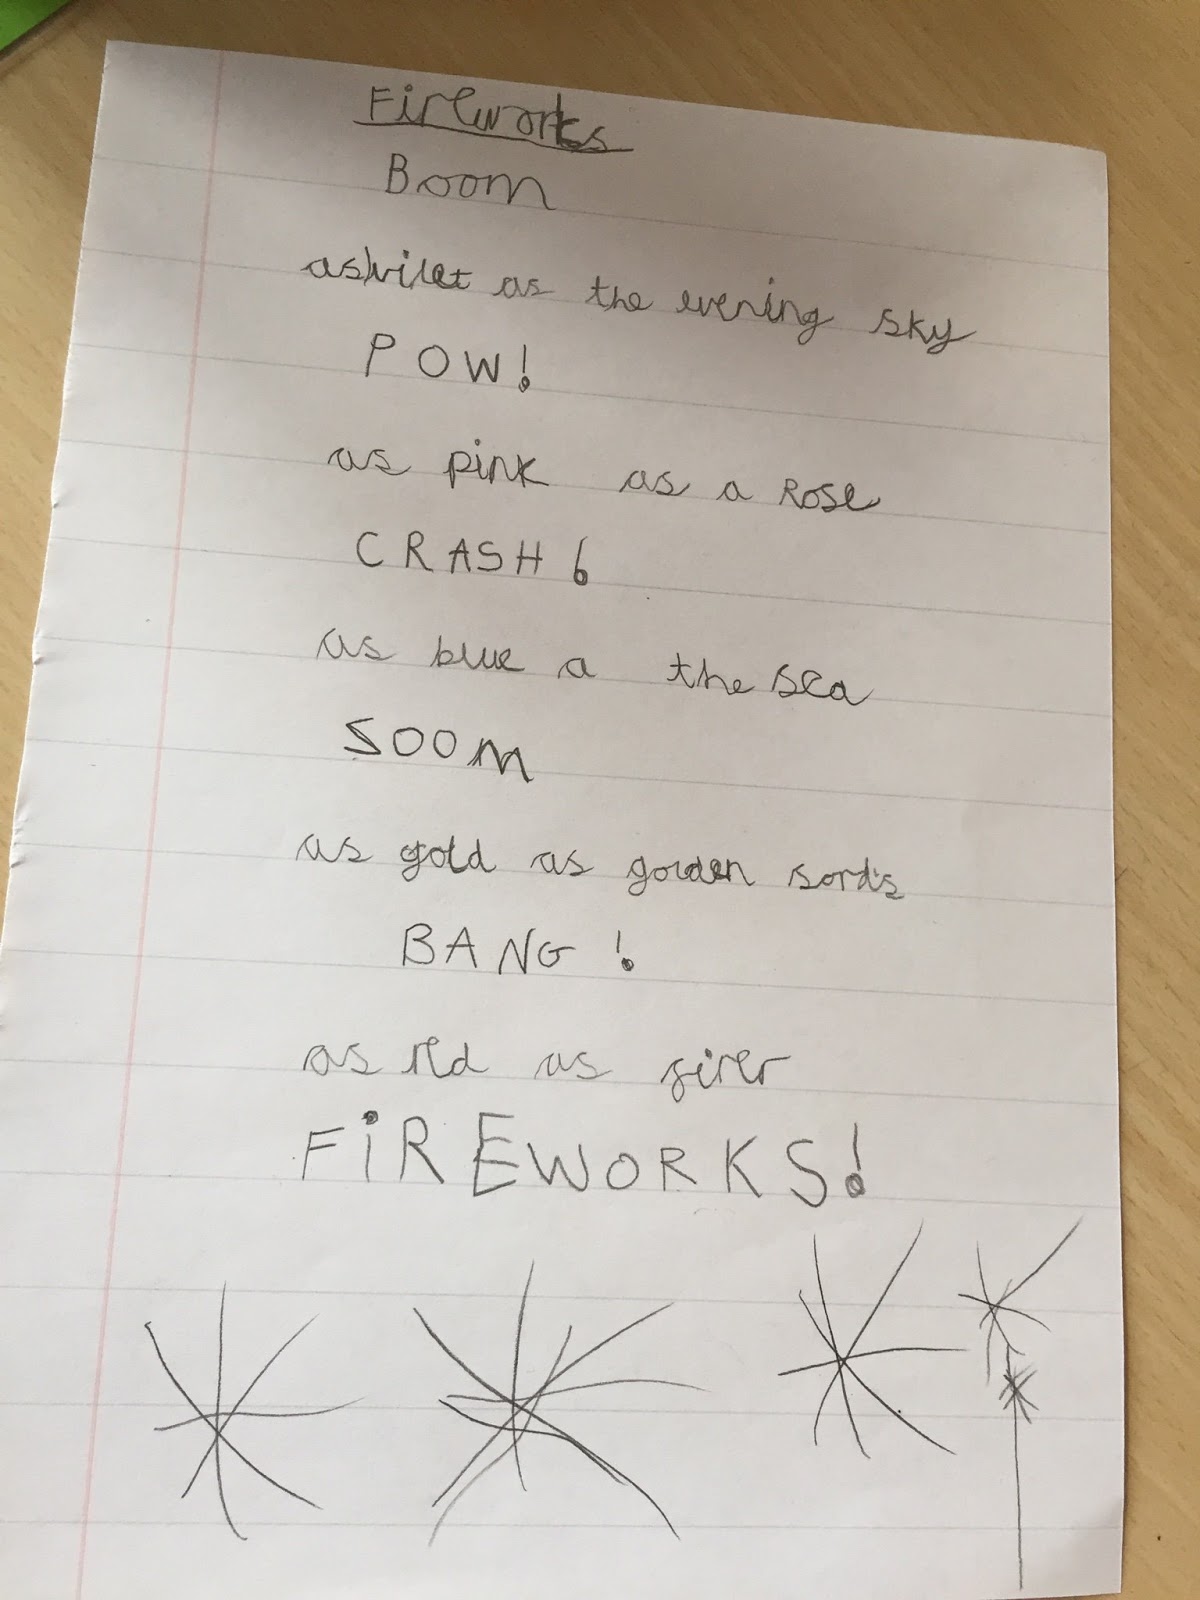 Fireworks
Boom
as vilet as the evening sky
POW!
as pink as a Rose
CRASH!
as blue a the sea
SOOM
as gold as golden sords
BANG!
as red as firer
FiREWORKS!